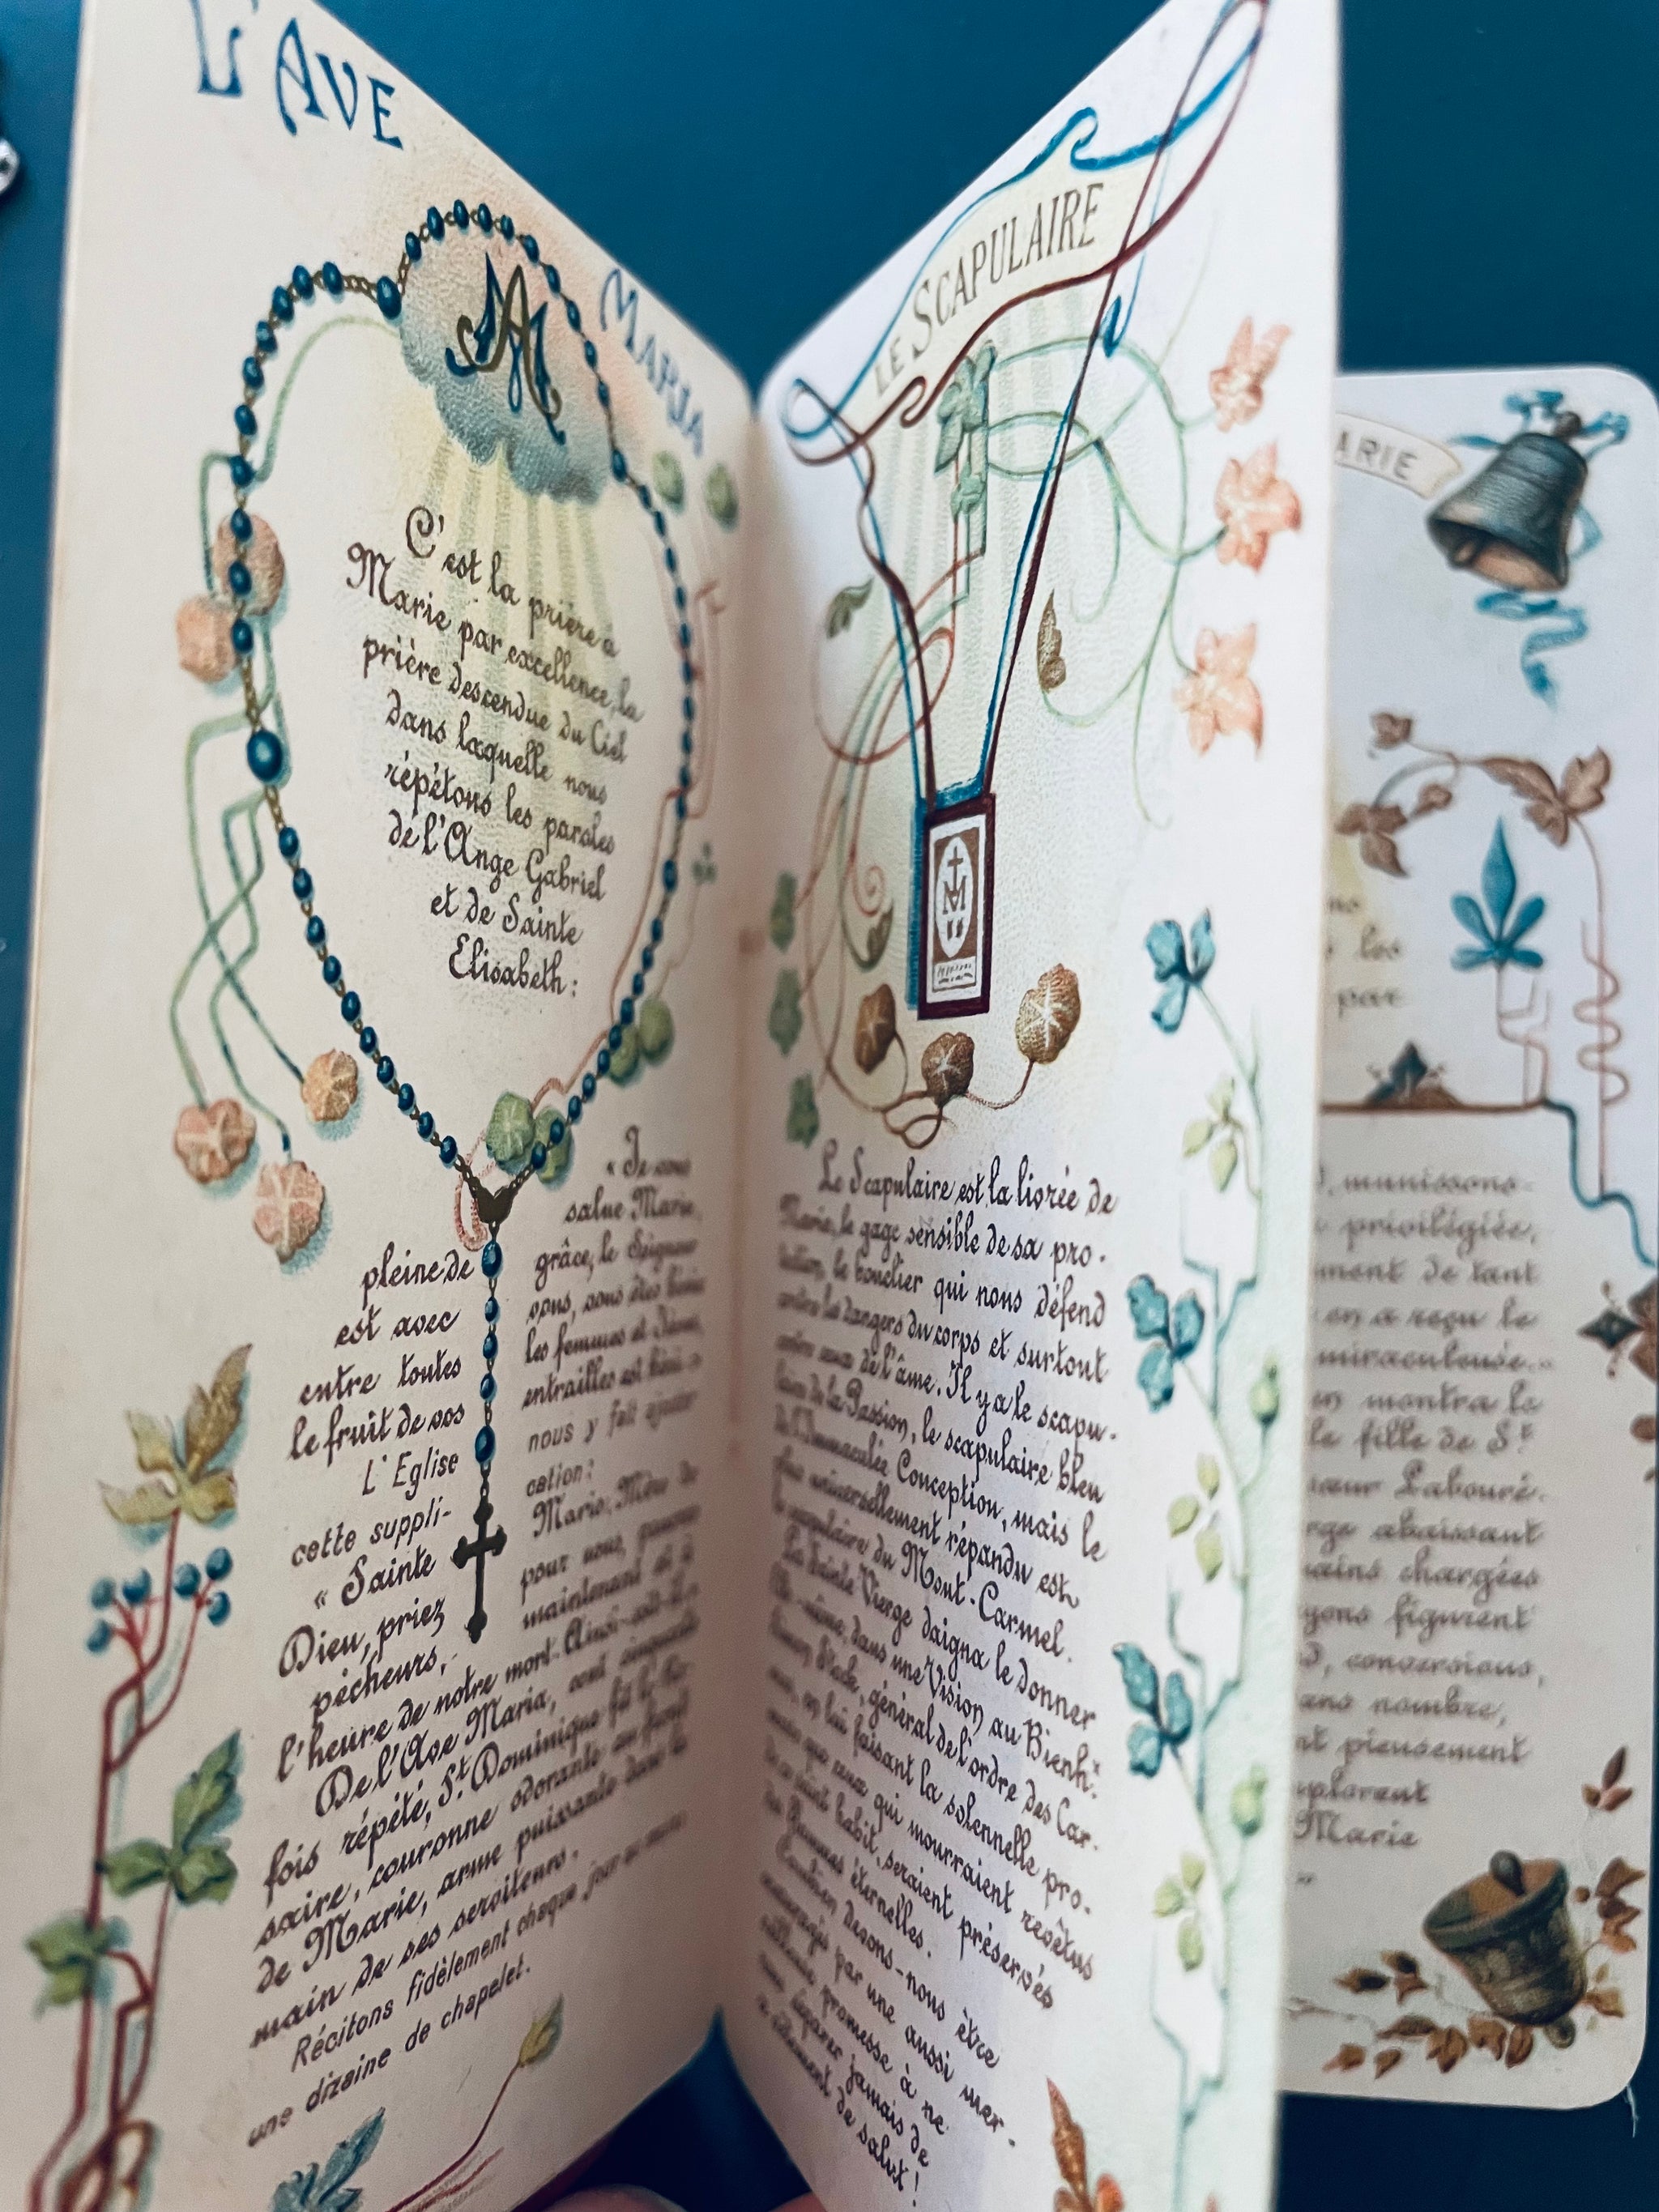 L'AVE
MARIA
C'est la prière à
Marie par excellence, la
prière descendue du Ciel
dans laquelle nous
répétons les paroles
de l'Ange Gabriel
et de Sainte
Elisabeth :
« Je vous
salue Marie,
pleine de grâce, le Seigneur
est avec vous, vous êtes bénie
entre toutes les femmes et Jésus,
le fruit de vos entrailles est béni »
L'Eglise nous y fait ajouter
cette suppli- cation :
« Sainte Marie, Mère de
Dieu, priez pour nous, pauvres
pécheurs, maintenant et à
l'heure de notre mort. Ainsi-soit-il »
De l'Ave Maria, cent cinquante
fois répété, St. Dominique fit le Ro-
saire, couronne odorante au front
de Marie, arme puissante dans la
main de ses serviteurs.
Récitons fidèlement chaque jour au moins
une dizaine de chapelet.
LE SCAPULAIRE
Le Scapulaire est la livrée de
Marie, le gage sensible de sa pro-
tection, le bouclier qui nous défend
contre les dangers du corps et surtout
contre ceux de l'âme. Il y a le scapu-
laire de la Passion, le scapulaire bleu
de l'Immaculée Conception, mais le
plus universellement répandu est
le scapulaire du Mont-Carmel.
La Sainte Vierge daigna le donner
elle-même, dans une Vision au Bienhx
Simon Stock, général de l'ordre des Car-
mes, en lui faisant la solennelle pro-
messe que ceux qui mourraient revêtus
de ce saint habit, seraient préservés
des flammes éternelles.
Combien devons-nous être
encouragés par une aussi mer-
veilleuse promesse à ne
nous séparer jamais de
ce vêtement de salut !
ARIE
les
par
munissons-
privilégiée,
de tant
en a reçu le
miraculeuse.
montra le
fille de St
sœur Labouré.
abaissant
mains chargées
figurent
conversions,
sans nombre,
pieusement
implorent
Marie